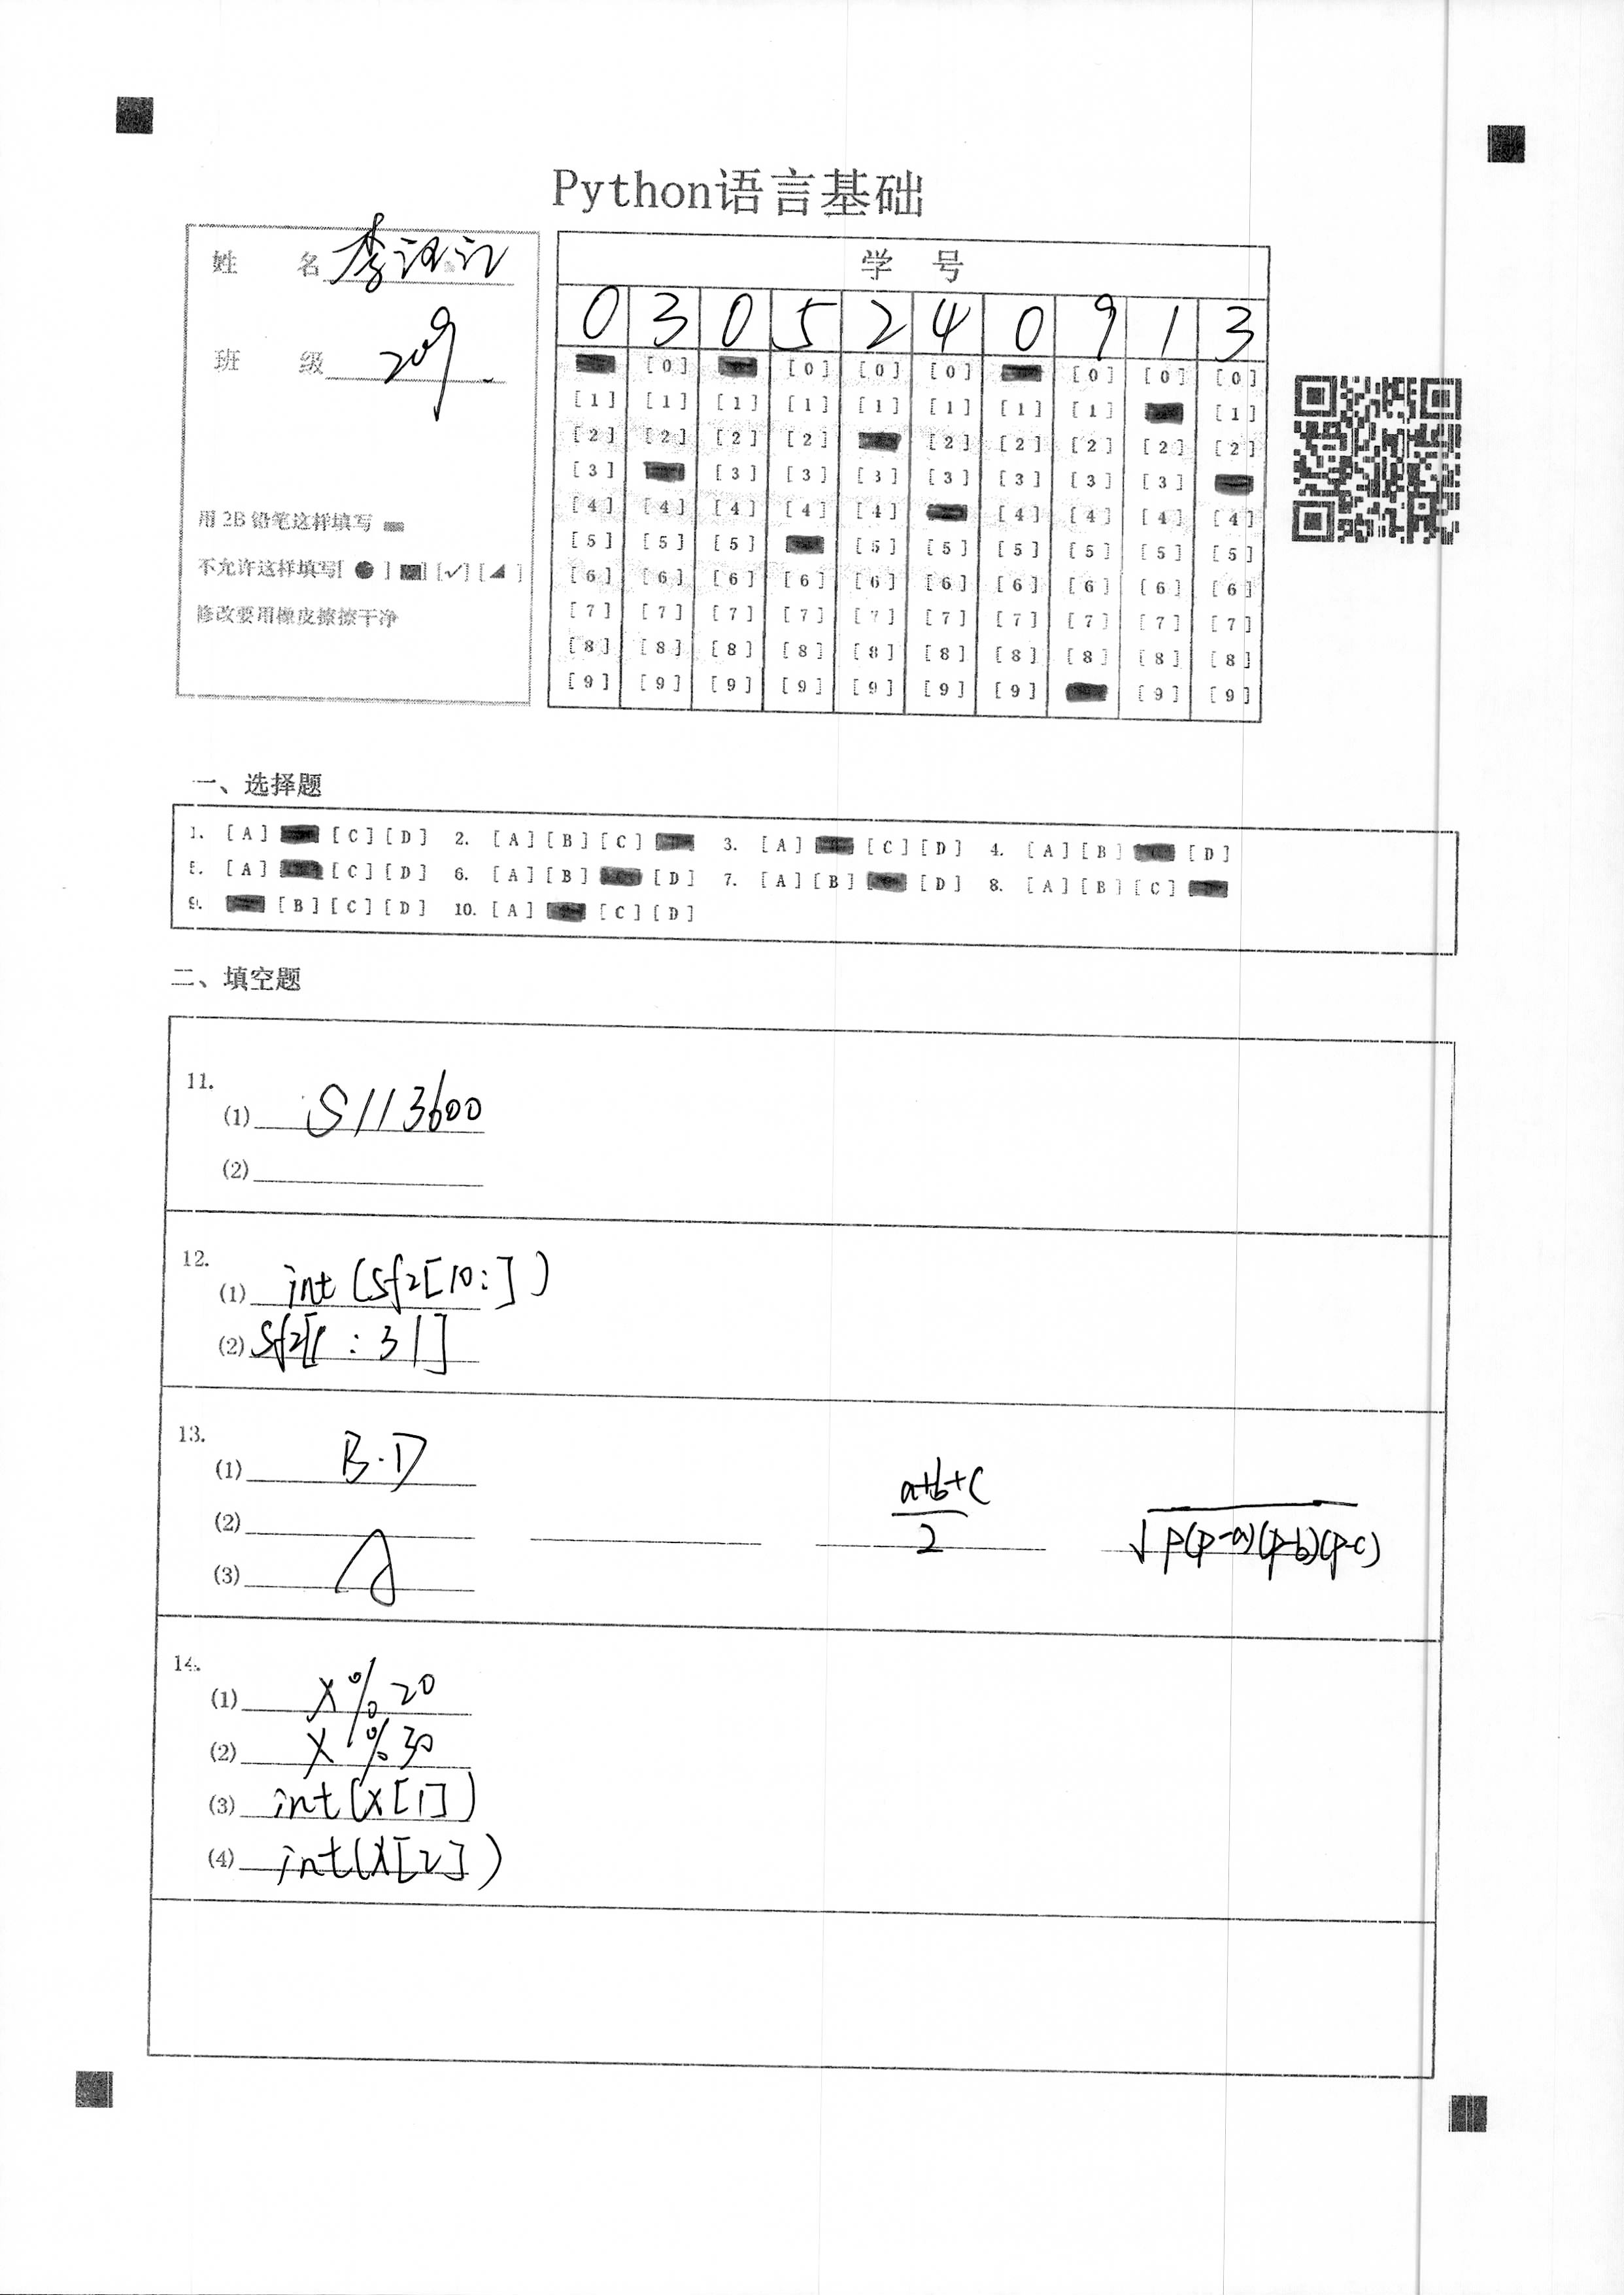 Python语言基础
姓 名 李
班 级 209
用 2B 铅笔这样填写
不允许这样填写[ ● ] [■] [✓] [◢ ]
修改要用橡皮擦擦干净
学 号
0 3 0 5 2 4 0 9 1 3
[0] [0] [0] [0] [0] [0] [0]
[1] [1] [1] [1] [1] [1] [1] [1] [1]
[2] [2] [2] [2] [2] [2] [2] [2] [2]
[3] [3] [3] [3] [3] [3] [3] [3]
[4] [4] [4] [4] [4] [4] [4] [4] [4]
[5] [5] [5] [5] [5] [5] [5] [5] [5]
[6] [6] [6] [6] [6] [6] [6] [6] [6] [6]
[7] [7] [7] [7] [7] [7] [7] [7] [7] [7]
[8] [8] [8] [8] [8] [8] [8] [8] [8] [8]
[9] [9] [9] [9] [9] [9] [9] [9] [9]
一、选择题
1. [A] [C] [D] 2. [A] [B] [C] 3. [A] [C] [D] 4. [A] [B] [D]
5. [A] [C] [D] 6. [A] [B] [D] 7. [A] [B] [D] 8. [A] [B] [C]
9. [B] [C] [D] 10. [A] [C] [D]
二、填空题
11.
(1) S//3600
(2)
12.
(1) int(Sf2[10:])
(2) Sf2[1:31]
13.
(1) B.D
(2) a+b+c/2 √p(p-a)(p-b)(p-c)
(3) A
14.
(1) X%20
(2) X%30
(3) int(X[1])
(4) int(X[2])